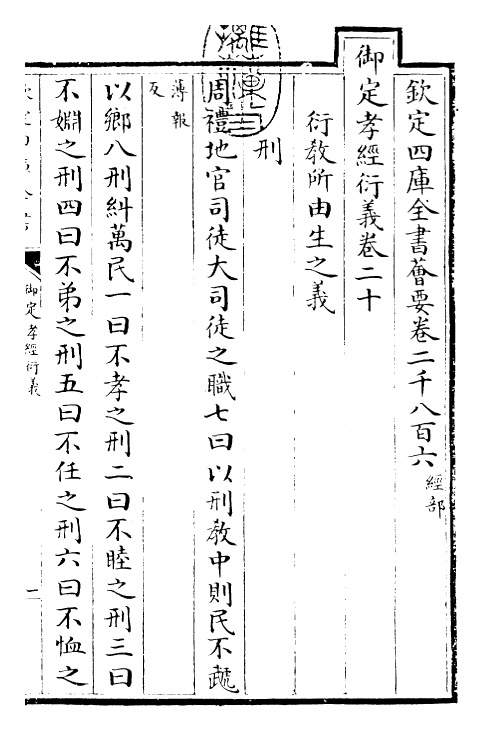 欽定四庫全書薈要卷二千八百六 經部
御定孝經衍義卷二十
衍敎所由生之義
刑
周禮地官司徒大司徒之職七曰以刑敎中則民不虣
薄報
反
以鄉八刑糾萬民一曰不孝之刑二曰不睦之刑三曰
不婣之刑四曰不弟之刑五曰不任之刑六曰不恤之
御定孝經衍義
一